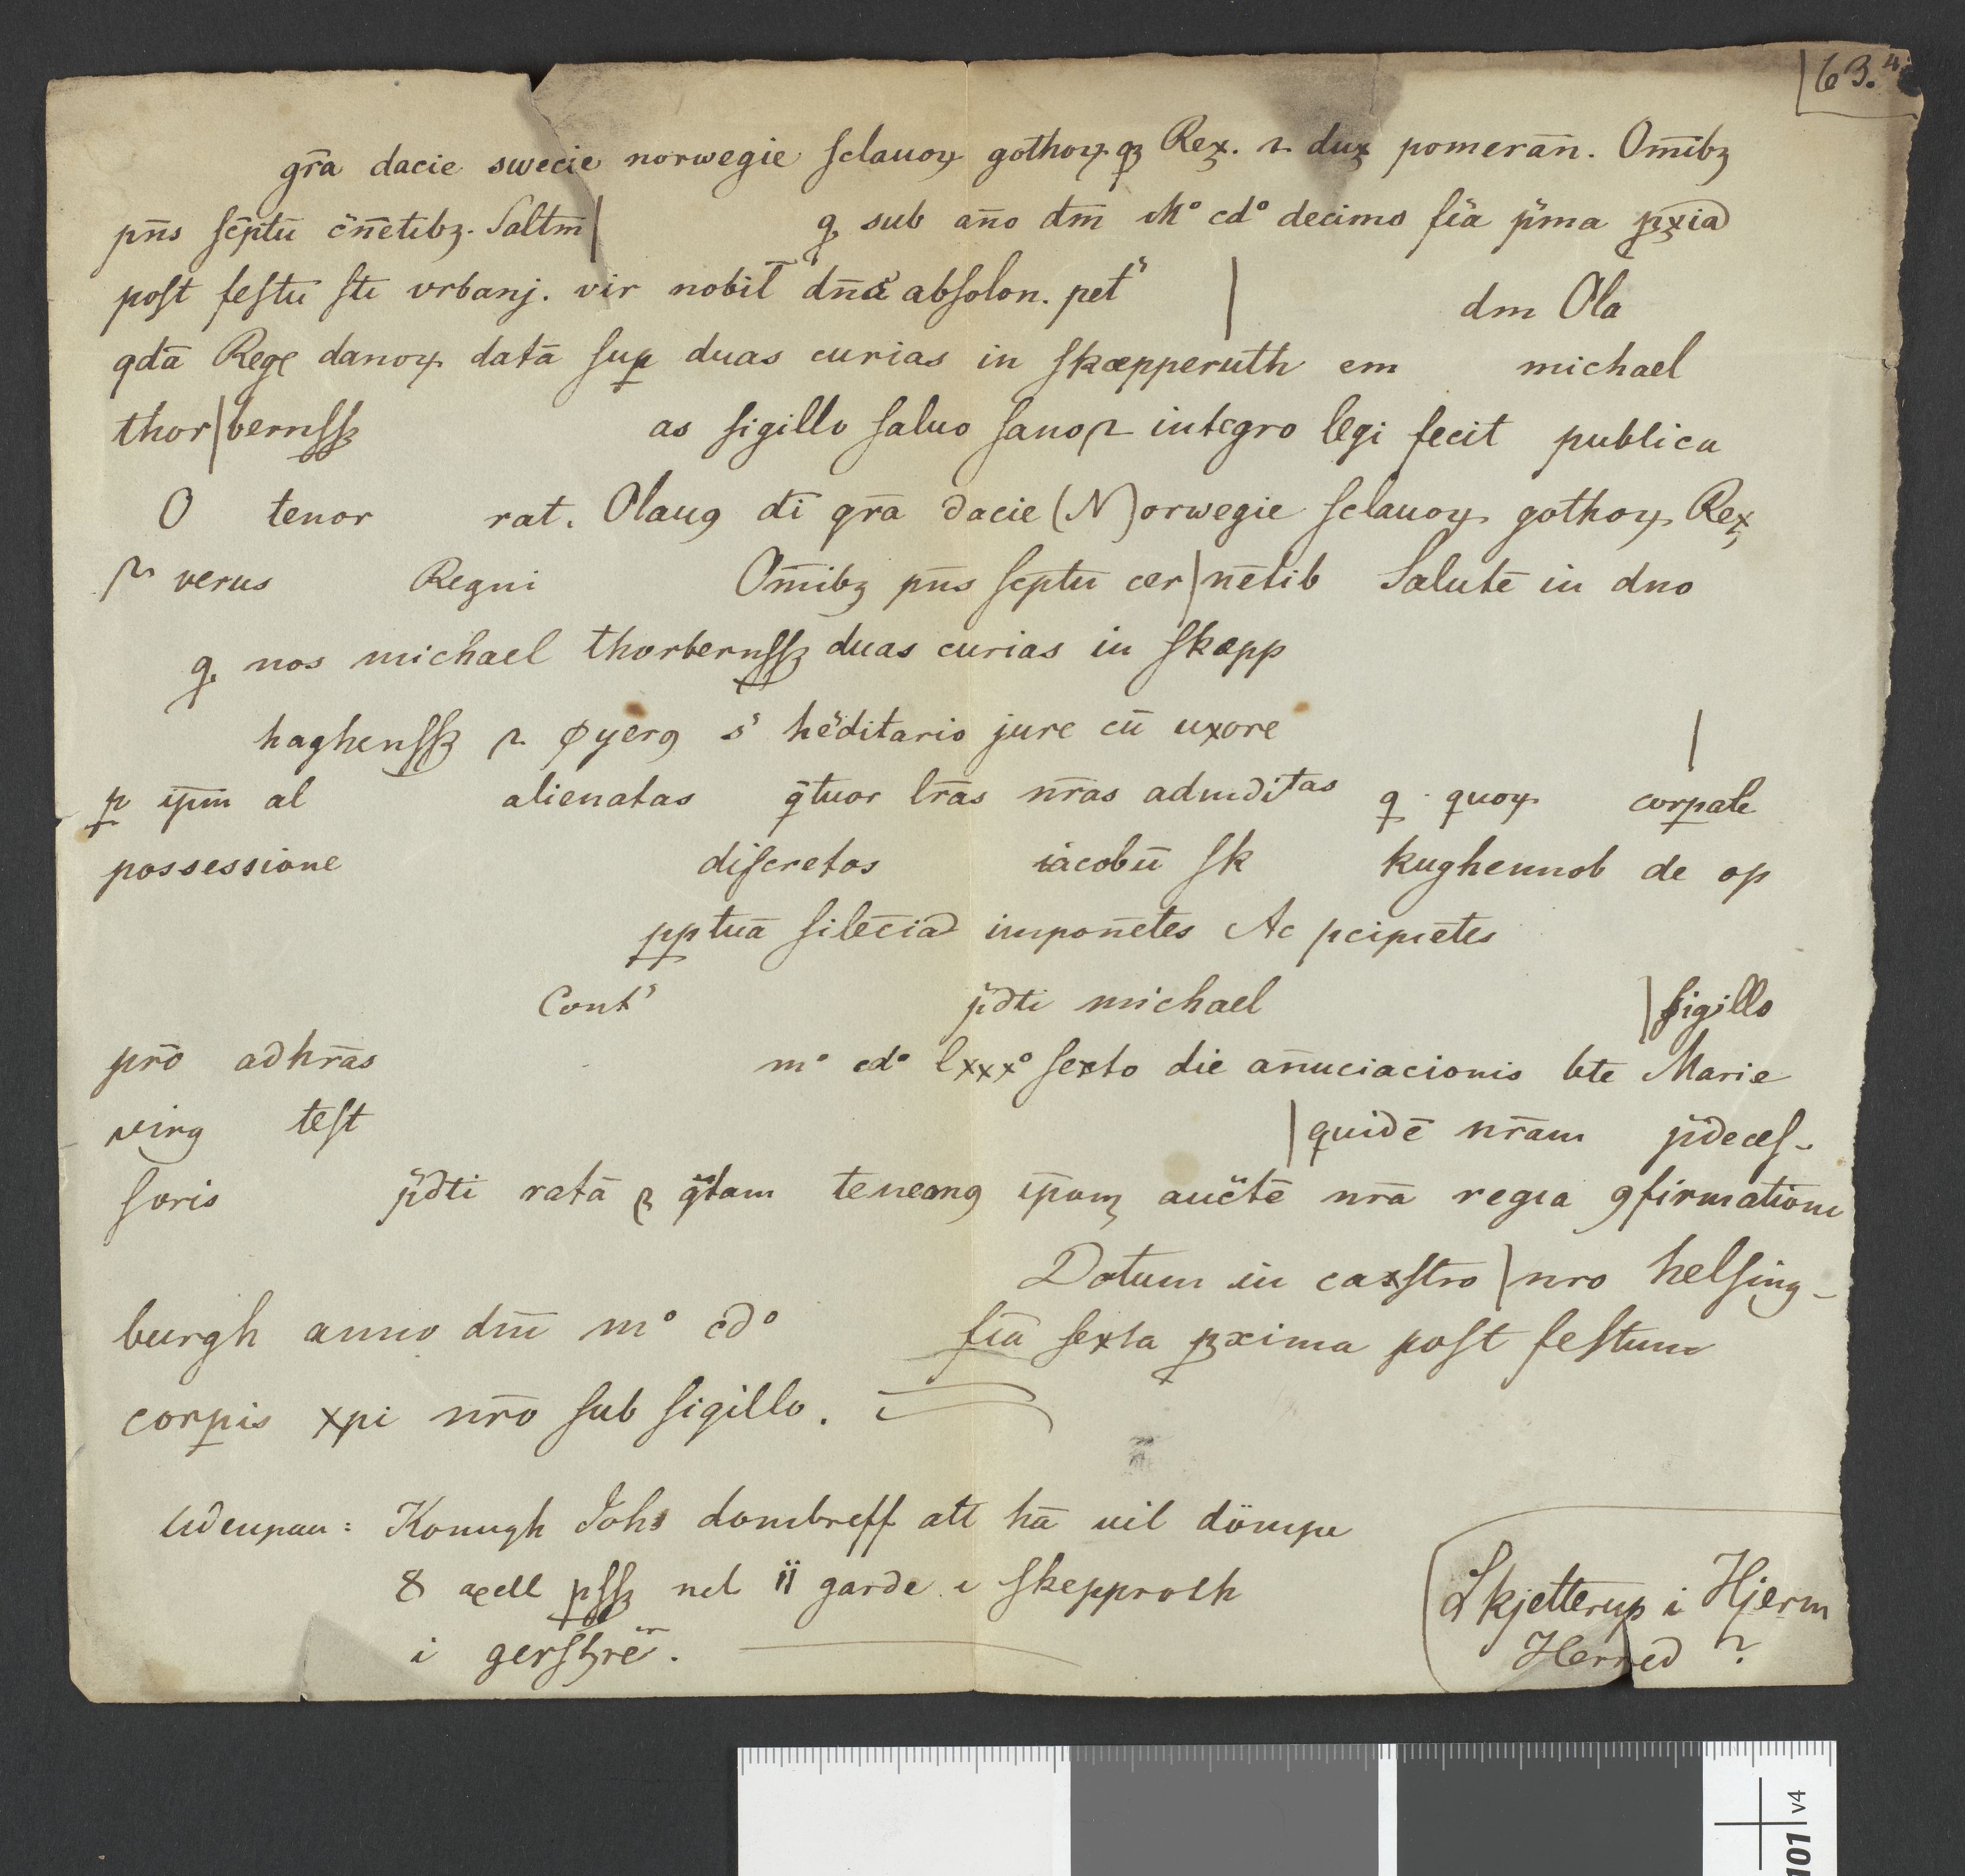 63.4
gr̄a dacie swecie norwegie sclauoꝝ gothoꝝ qꝫ Rex. ⁊ dux pomeran̄. Om̄ibꝫ
pn̄s sc̄ptū cn̄etibꝫ. Saltm̄| q, sub an̄o dm̄ M° cd° decimo fīa p̄ma ꝓxia
post festū sti vrbanj. vir nobil̄ dn̄s absolon. pet | dm Ola
qdā Rege danoꝝ datā suꝑ duas curias in skæpperuth em michael
thor|bernssꝫ as sigillo saluo sano ⁊ integro legi fecit publica
O tenor rat. Olaug dī gr̄a dacie (N)orwegie sclauoꝝ gothoꝝ Rex
⁊ verus Regni Om̄ibꝫ pn̄s scptū cer|nētib Salutē in dno
q, nos michael thorbernssꝫ duas curias in skæpp
haghenssꝫ ⁊ øyerꝯ s hēditario jure cū uxore |
ꝑ ip̄m al alienatas q̄tuor lr̄as nr̄as q quoꝝ corꝑale
possessione discretos iacobū sk de op
ꝑꝑtuā silēciā imponētes Ac pcipiētes
Cont p̄dti michael |sigillo
pr̄o adhr̄as m° cd° lxxx° sexto die an̄uciacionis bte Marie
virg test |quidē nr̄am p̄deces-
soris p̄dti ratā ⁊ gͣtam teneang ip̄am auctē nr̄a regia ꝯfirmatiōni
Datum in castro | nro helsing-
burgh anno dm̄ m° cd° fīa sexta ꝓxima post festum
corꝑis xpi nr̄o sub sigillo.
Udenpaa: Konugh Johs dombreff att hā uil dömpe
8 axell pssꝫ ned ii garde i skepproth
i gersꝫrē.
Skjetterup i Hjerm
Herred ?
101 v4